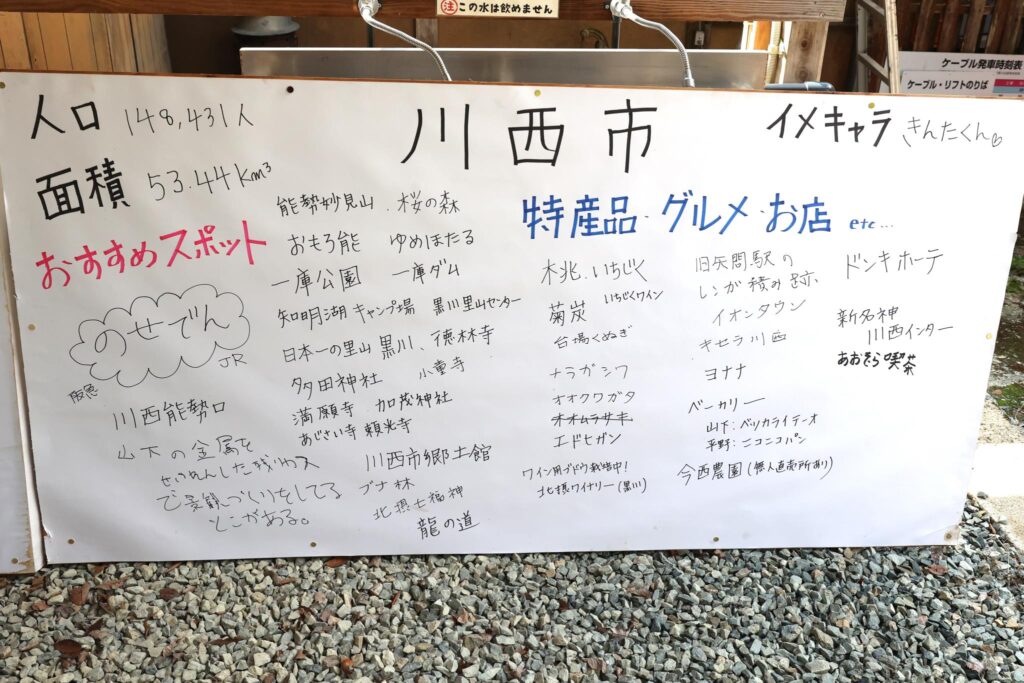 注 この水は飲めません
ケーブル発車時刻表
ケーブル・リフトのりば
人口 148,431人
川西市
イメキャラ きんたくん
面積 53.44km³
おすすめスポット
のせでん
阪急
JR
川西能勢口
山下の金属を
せいれんした残りカス
で景観づくりをしてる
とこがある。
能勢妙見山 . 桜の森
おもろ能 ゆめほたる
一庫公園 一庫ダム
知明湖キャンプ場 黒川里山センター
日本一の里山 黒川、徳林寺
多田神社 小童寺
満願寺 加茂神社
あじさい寺 頼光寺
川西市郷土館
ブナ林
北摂七福神
龍の道
特産品・グルメ・お店 etc...
桃.いちじく
菊炭 いちじくワイン
台場くぬぎ
ナラガシワ
オオクワガタ
オオムラサキ
エドヒガン
ワイン用ブドウ栽培中!
北摂ワイナリー(黒川)
旧矢問駅の
レンガ積み跡、
イオンタウン
キセラ川西
ヨナナ
ベーカリー
山下:ベッカライテーオ
平野:ニコニコパン
今西農園(無人直売所あり)
ドンキホーテ
新名神
川西インター
あおぞら喫茶